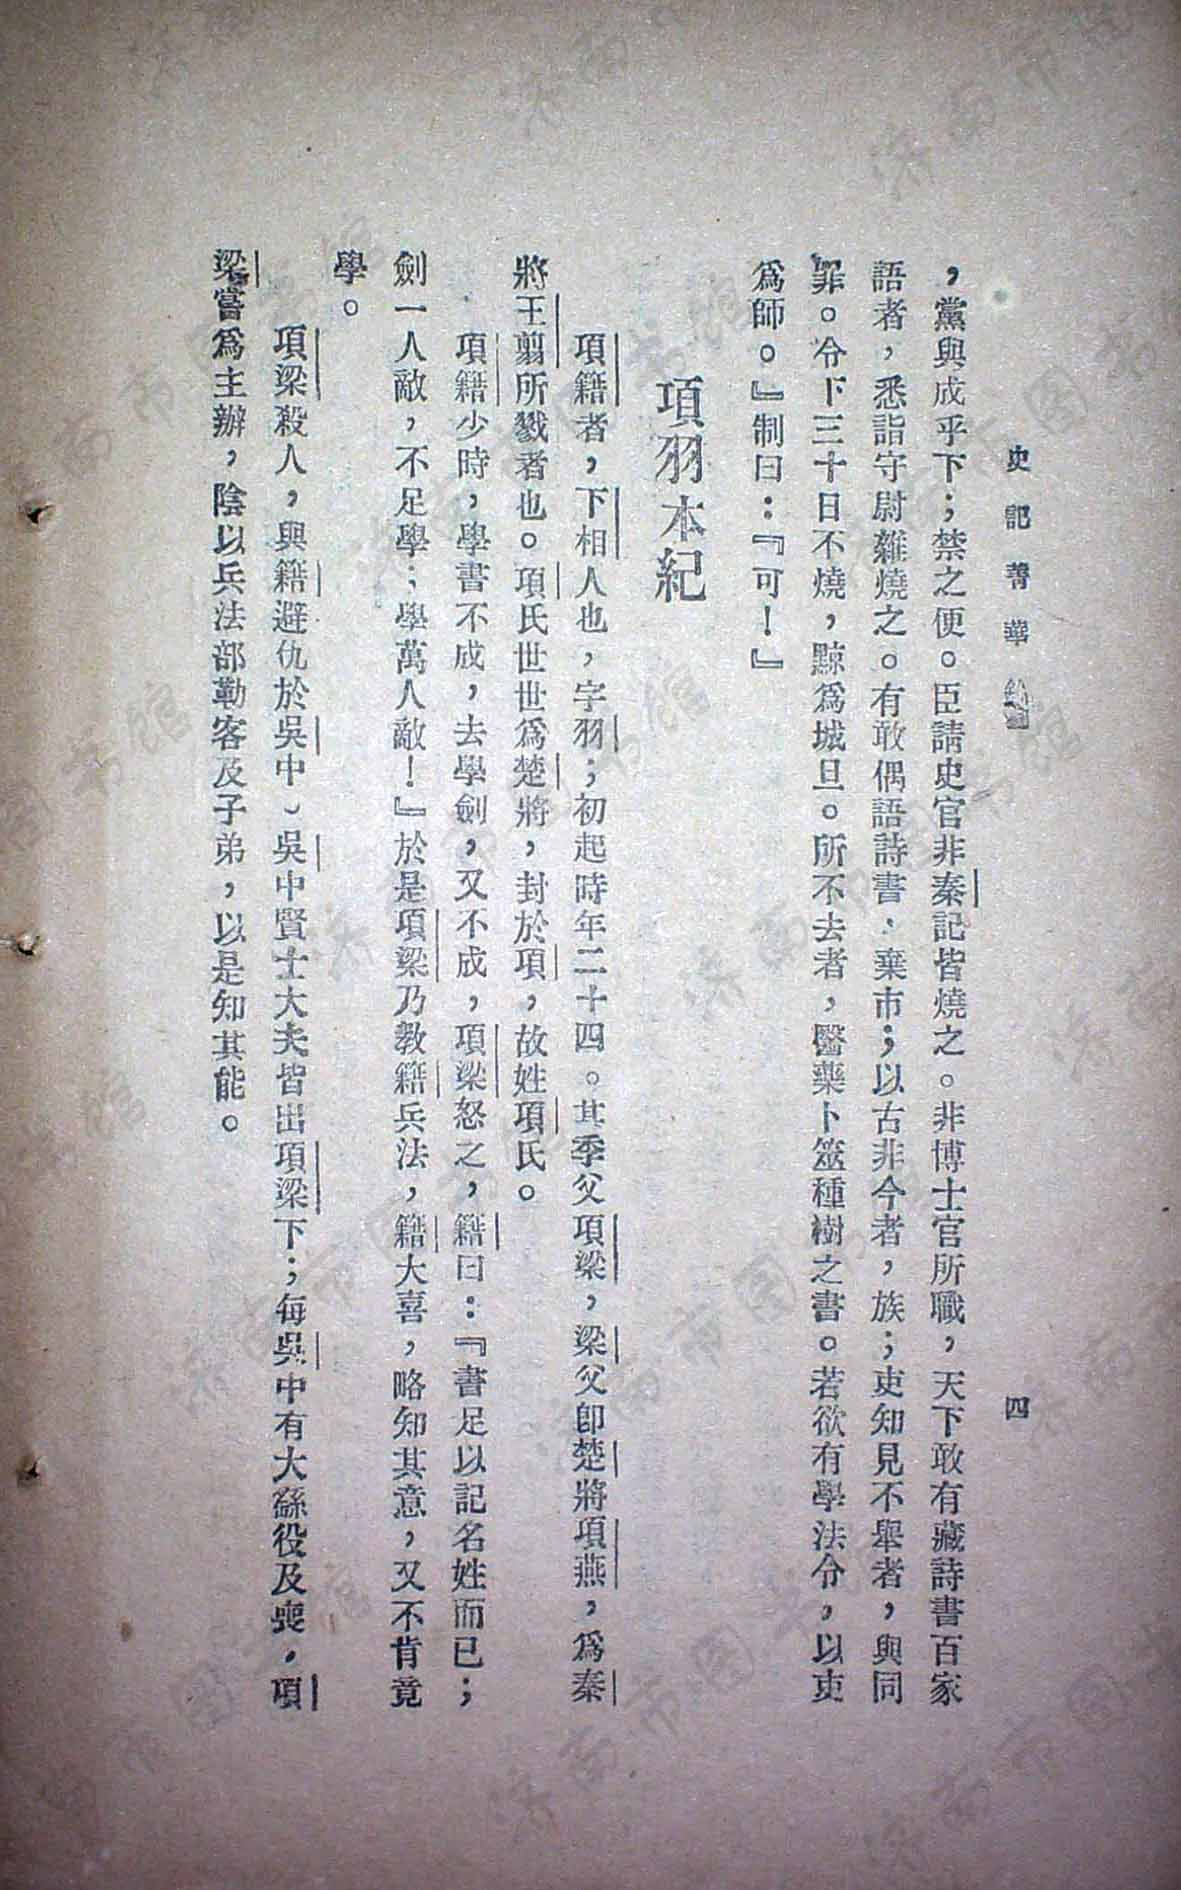 史記菁華
四
，黨與成乎下；禁之便。臣請史官非秦記皆燒之。非博士官所職，天下敢有藏詩書百家
語者，悉詣守尉雜燒之。有敢偶語詩書，棄市；以古非今者，族；吏知見不舉者，與同
罪。令下三十日不燒，黥爲城旦。所不去者，醫藥卜筮種樹之書。若欲有學法令，以吏
爲師。』制曰：『可！』
項羽本紀
項籍者，下相人也，字羽；初起時年二十四。其季父項梁，梁父卽楚將項燕，爲秦
將王翦所戮者也。項氏世世爲楚將，封於項，故姓項氏。
項籍少時，學書不成，去學劍，又不成，項梁怒之，籍曰：『書足以記名姓而已；
劍一人敵，不足學；學萬人敵！』於是項梁乃敎籍兵法，籍大喜，略知其意，又不肯竟
學。
項梁殺人，與籍避仇於吳中、吳中賢士大夫皆出項梁下；每吳中有大繇役及喪，項
梁嘗爲主辦，陰以兵法部勒客及子弟，以是知其能。
濟南市图书馆